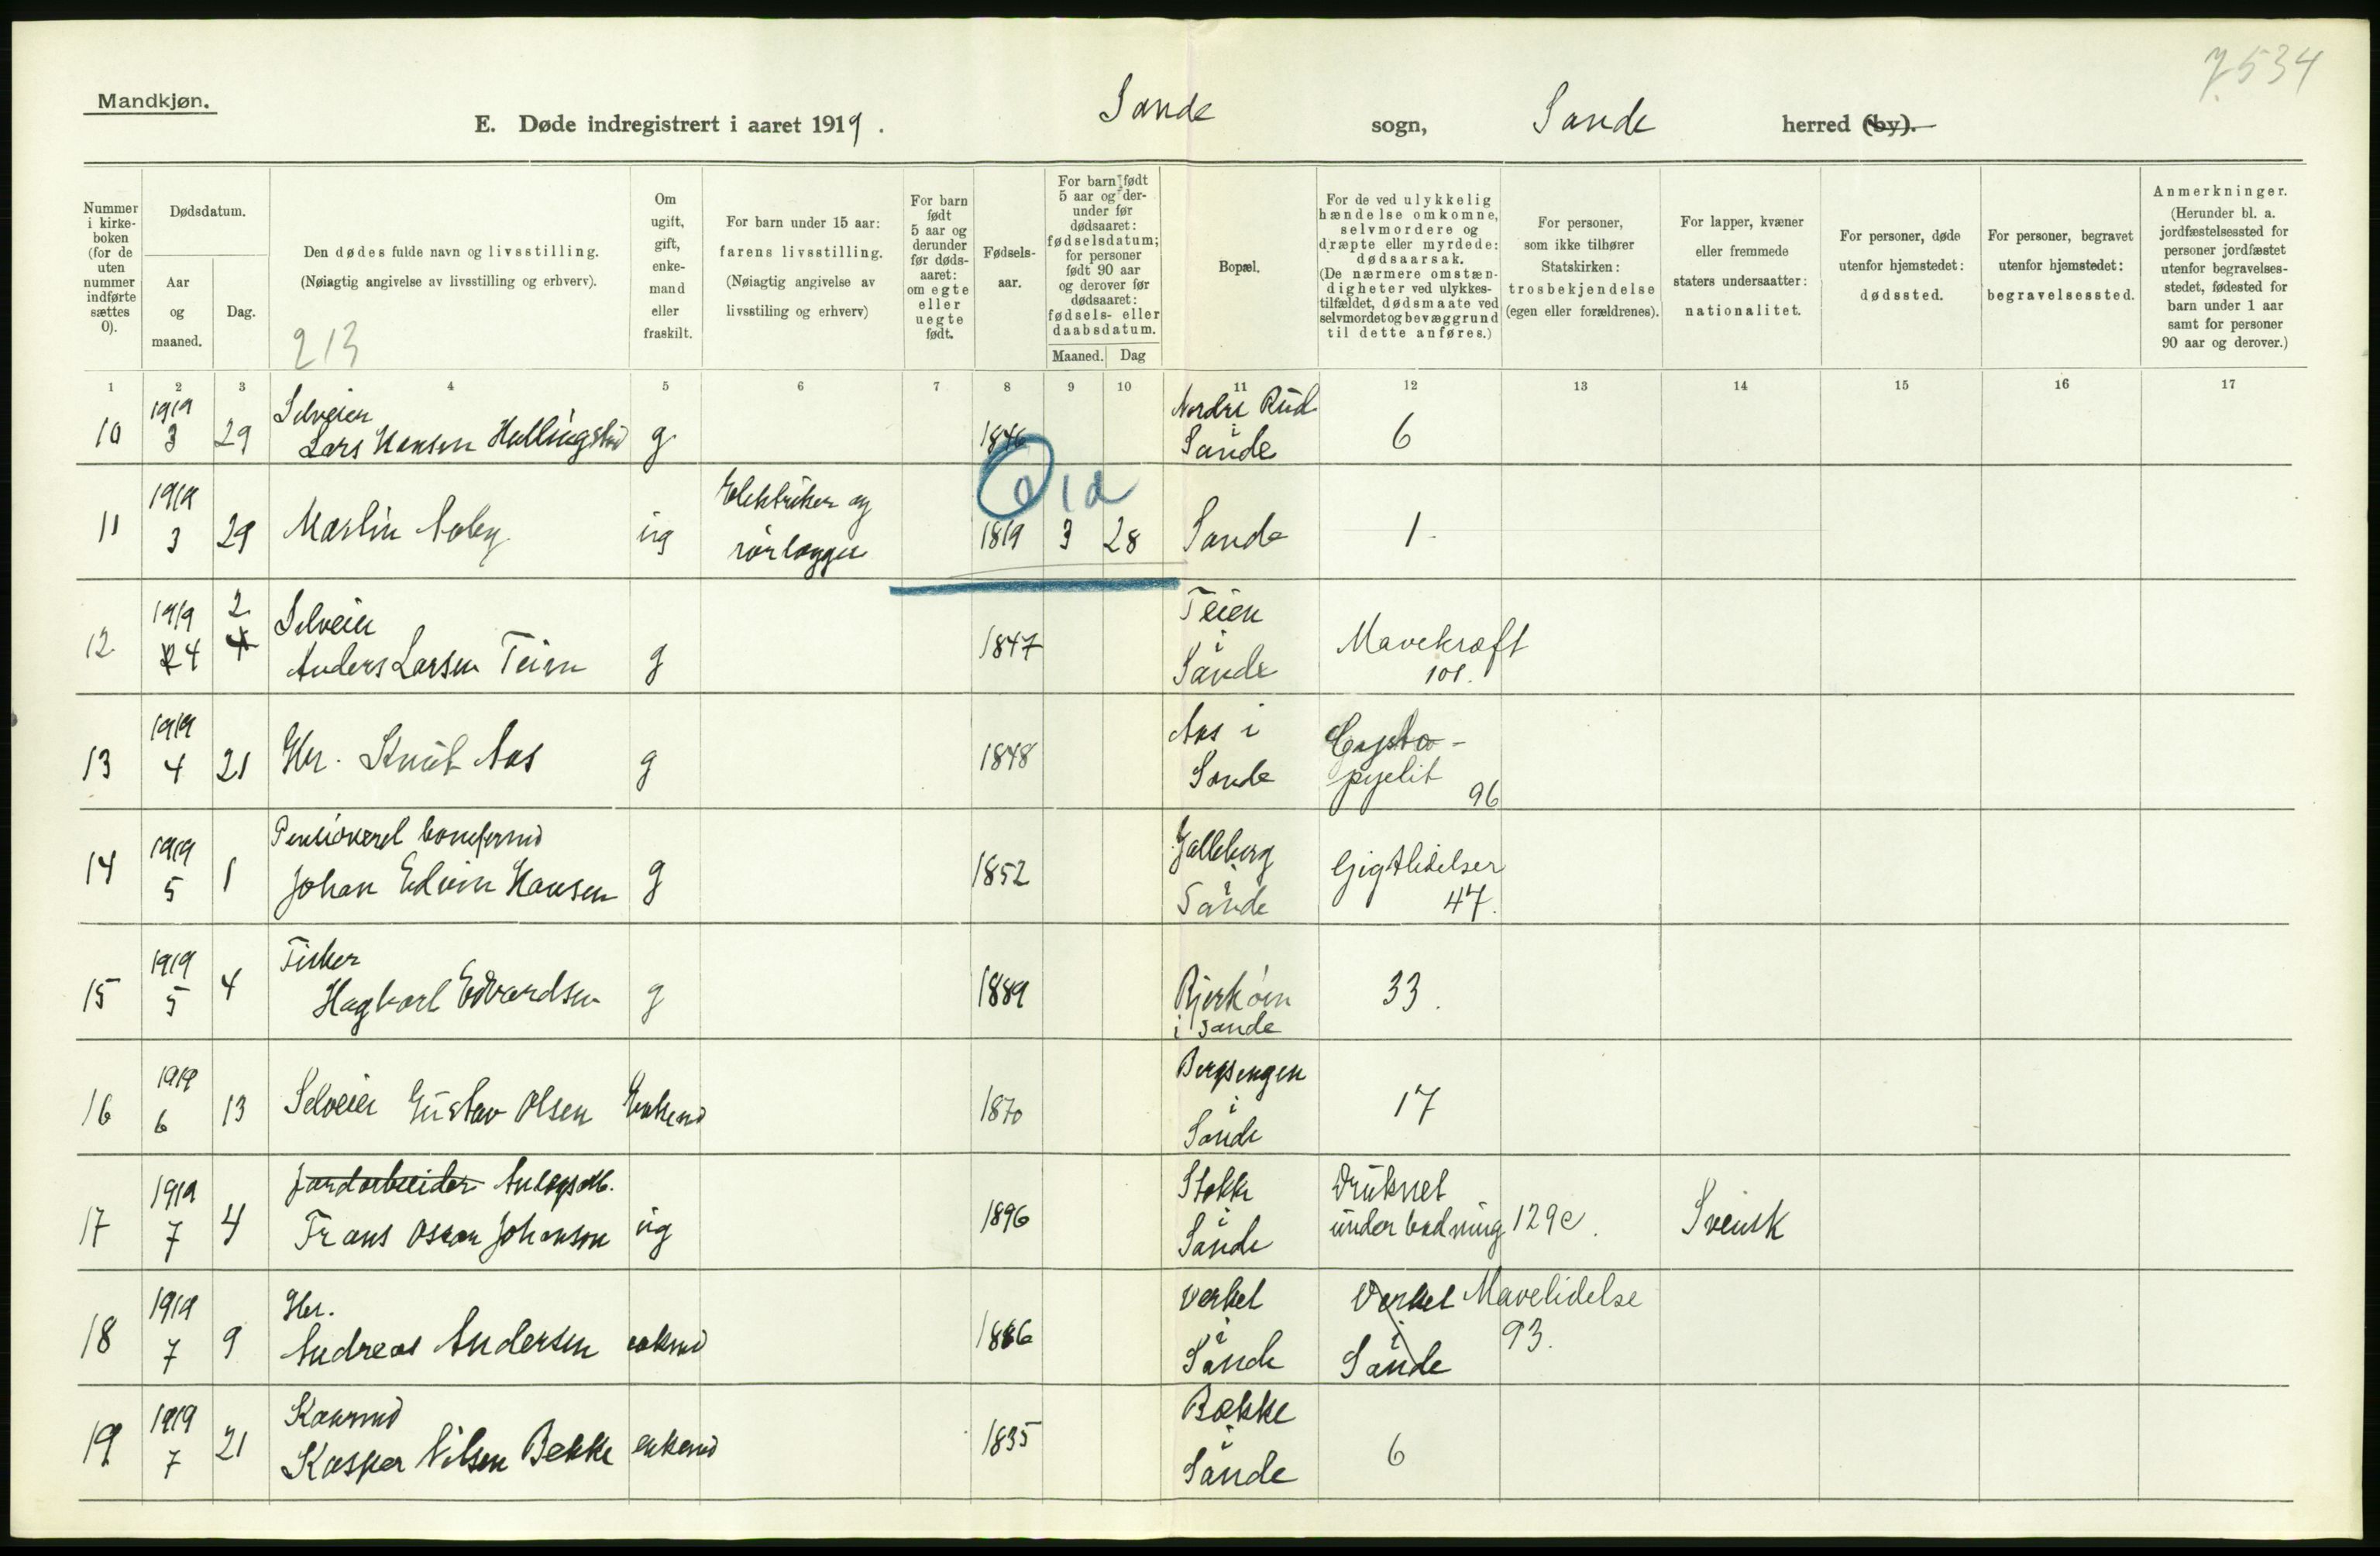 7534
Mandkjøn.
E. Døde indregistrert i aaret 1919. Sande sogn, Sande herred (by).
Nummer i kirkeboken (for de uten nummer indførte sættes 0).
Dødsdatum.
Aar og maaned.
Dag.
Den dødes fulde navn og livsstilling.
(Nøiagtig angivelse av livsstilling og erhverv).
213
Om ugift, gift, enkemand eller fraskilt.
For barn under 15 aar: farens livsstilling.
(Nøiagtig angivelse av livsstiling og erhverv)
For barn født 5 aar og derunder før dødsaaret: om egte eller uegte født.
Fødselsaar.
For barn født 5 aar og derunder før dødsaaret: fødselsdatum; for personer født 90 aar og derover før dødsaaret: fødsels- eller daabsdatum.
Maaned. Dag
Bopæl.
For de ved ulykkelig hændelse omkomne, selvmordere og dræpte eller myrdede: dødsaarsak.
(De nærmere omstændigheter ved ulykkestilfældet, dødsmaate ved selvmordet og bevæggrund til dette anføres.)
For personer, som ikke tilhører Statskirken: trosbekjendelse (egen eller forældrenes).
For lapper, kvæner eller fremmede staters undersaatter: nationalitet.
For personer, døde utenfor hjemstedet: dødssted.
For personer, begravet utenfor hjemstedet: begravelsessted.
Anmerkninger.
(Herunder bl. a. jordfæstelsessted for personer jordfæstet utenfor begravelsesstedet, fødested for barn under 1 aar samt for personer 90 aar og derover.)
1 2 3 4 5 6 7 8 9 10 11 12 13 14 15 16 17
1919 Selveier Nordre Rud
10 3 29 Lars Hansen Hallingstad g 1846 i Sande 6
1919 Elektriker og 1d
11 3 29 Martin Aaby ug rörlægger 1819 3 28 Sande 1
1919 2 Selveier Teien
12 4 4 Anders Larsen Teien g 1847 i Sande Mavekræft 101.
1919 Aas i
13 4 21 Gbr. Knut Aas g 1848 Sande pyelit 96
1919 Pensioneret
14 5 1 Johan Edvin Hansen g 1852 Galleberg i Sande Gigtlidelser 47.
1919 Fisker
15 5 4 Hagbart Edvardsen g 1889 Bjerköen i Sande 33.
1919 Bergsengen
16 6 13 Selveier Gustav Olsen Enkemd 1870 i Sande 17
1919 Jordarbeider Anlegsarb. Stokke Druknet
17 7 4 Frans Oscar Johanson ug 1896 i Sande under badning 129c. Svensk
1919 Gbr. Verket Verket Mavelidelse
18 7 9 Andreas Andersen enkemd 1886 i Sande i Sande 93.
1919 Kaarmd Bække
19 7 21 Kasper Nilsen Bekke enkemd 1835 i Sande 6